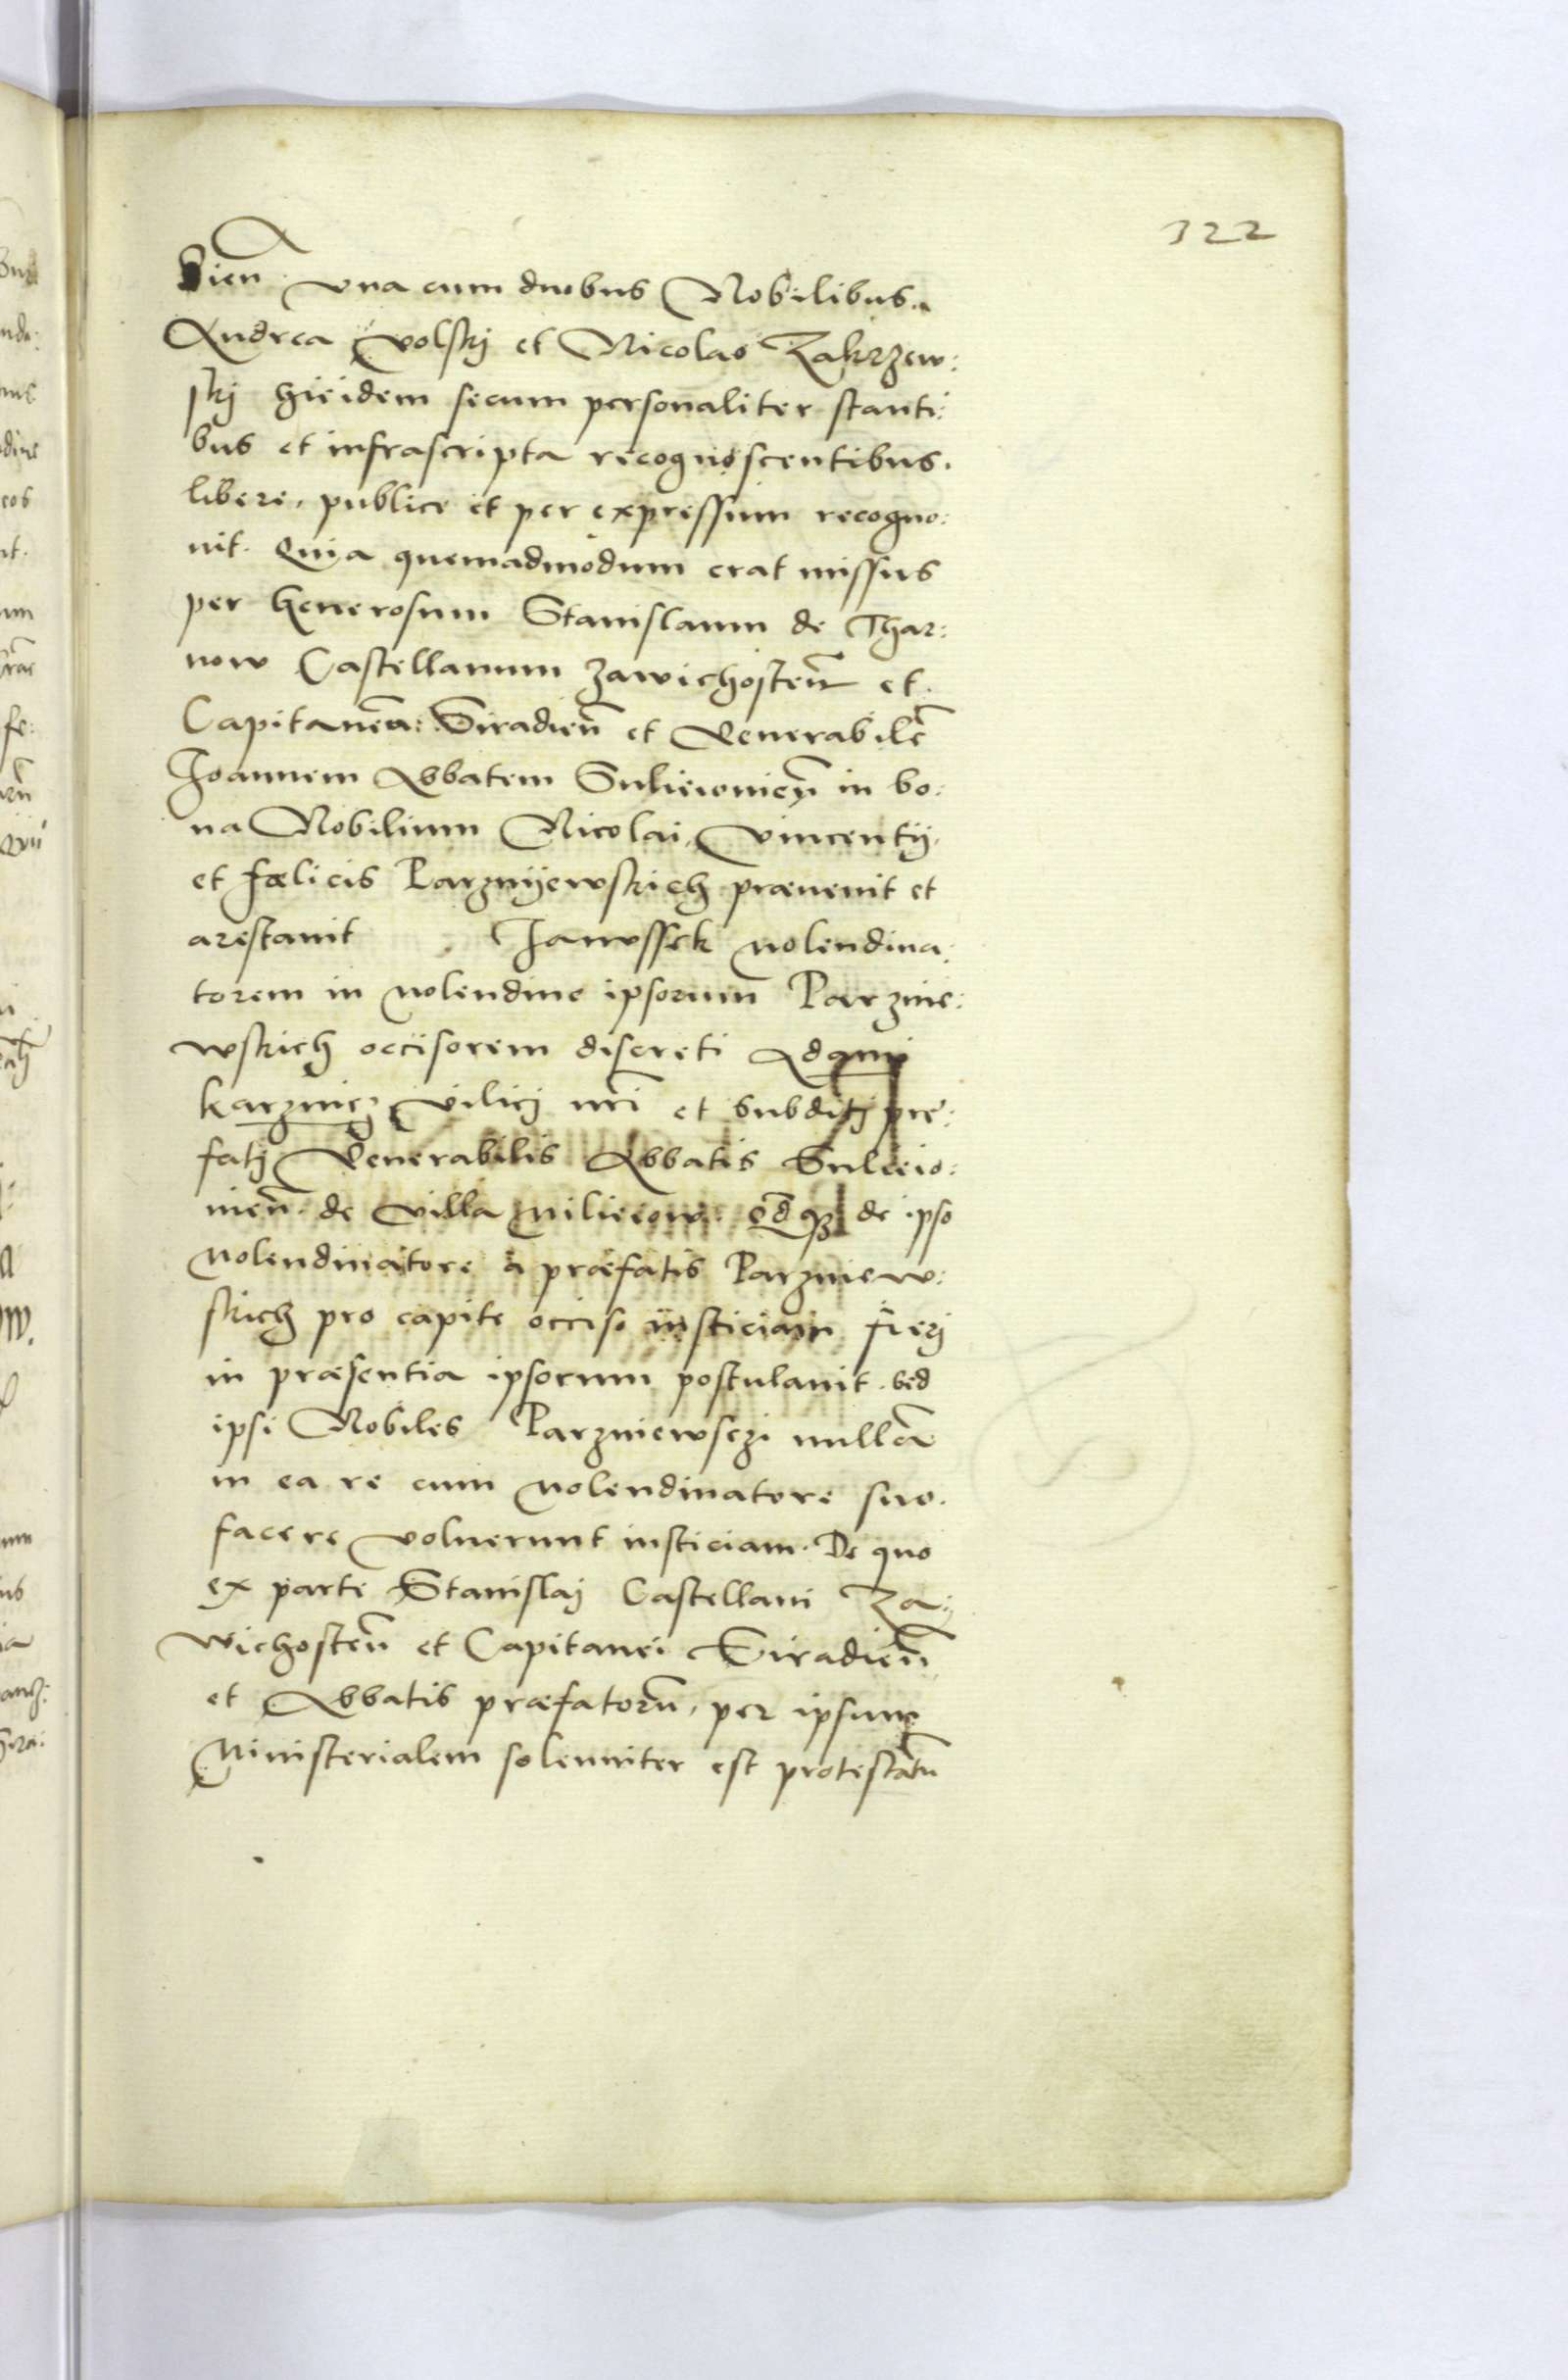 322
Sien̄. vna cum duobus Nobilibus.
Andrea Volskj et Nicolao Zakrzew:
skj hicidem secum personaliter stanti:
bus et infrascripta recognoscentibus.
libere, publice et per expressum recogno:
uit. Quia quemadmodum erat missus
per Generosum Stanislaum de Thar:
now Castellanum Zawichosten̄ et
Capitaneū: Siradien̄ et Venerabilē
Joannem Abbatem Suliewien̄ in bo:
na Nobilium Nicolai, Vincentij,
et fœlicis Parznyewskich prævenit et
arestauit Janussek Molendina:
torem in Molendino ipsorum Parznie:
wskich occisorem discreti Adami
Karznicz Vilicj nr̄i et Subditj præ:
fatj Venerabilis Abbatis Suleio:
uien̄. de Villa Miliecow. de ipso
Molendinatore a præfatis Parzniew:
skich pro capite occiso iusticiam fierj
in præsentia ipsorum postulauit. Sed
ipsi Nobiles Parzniewsczi nullā
in ea re cum Molendinatore suo.
facere voluerunt iusticiam. De quo
ex parte Stanislaj Castellani Za:
wichosten̄ et Capitanei Siradien̄
et Abbatis præfatorū, per ipsum
Ministerialem solenniter est protestatū